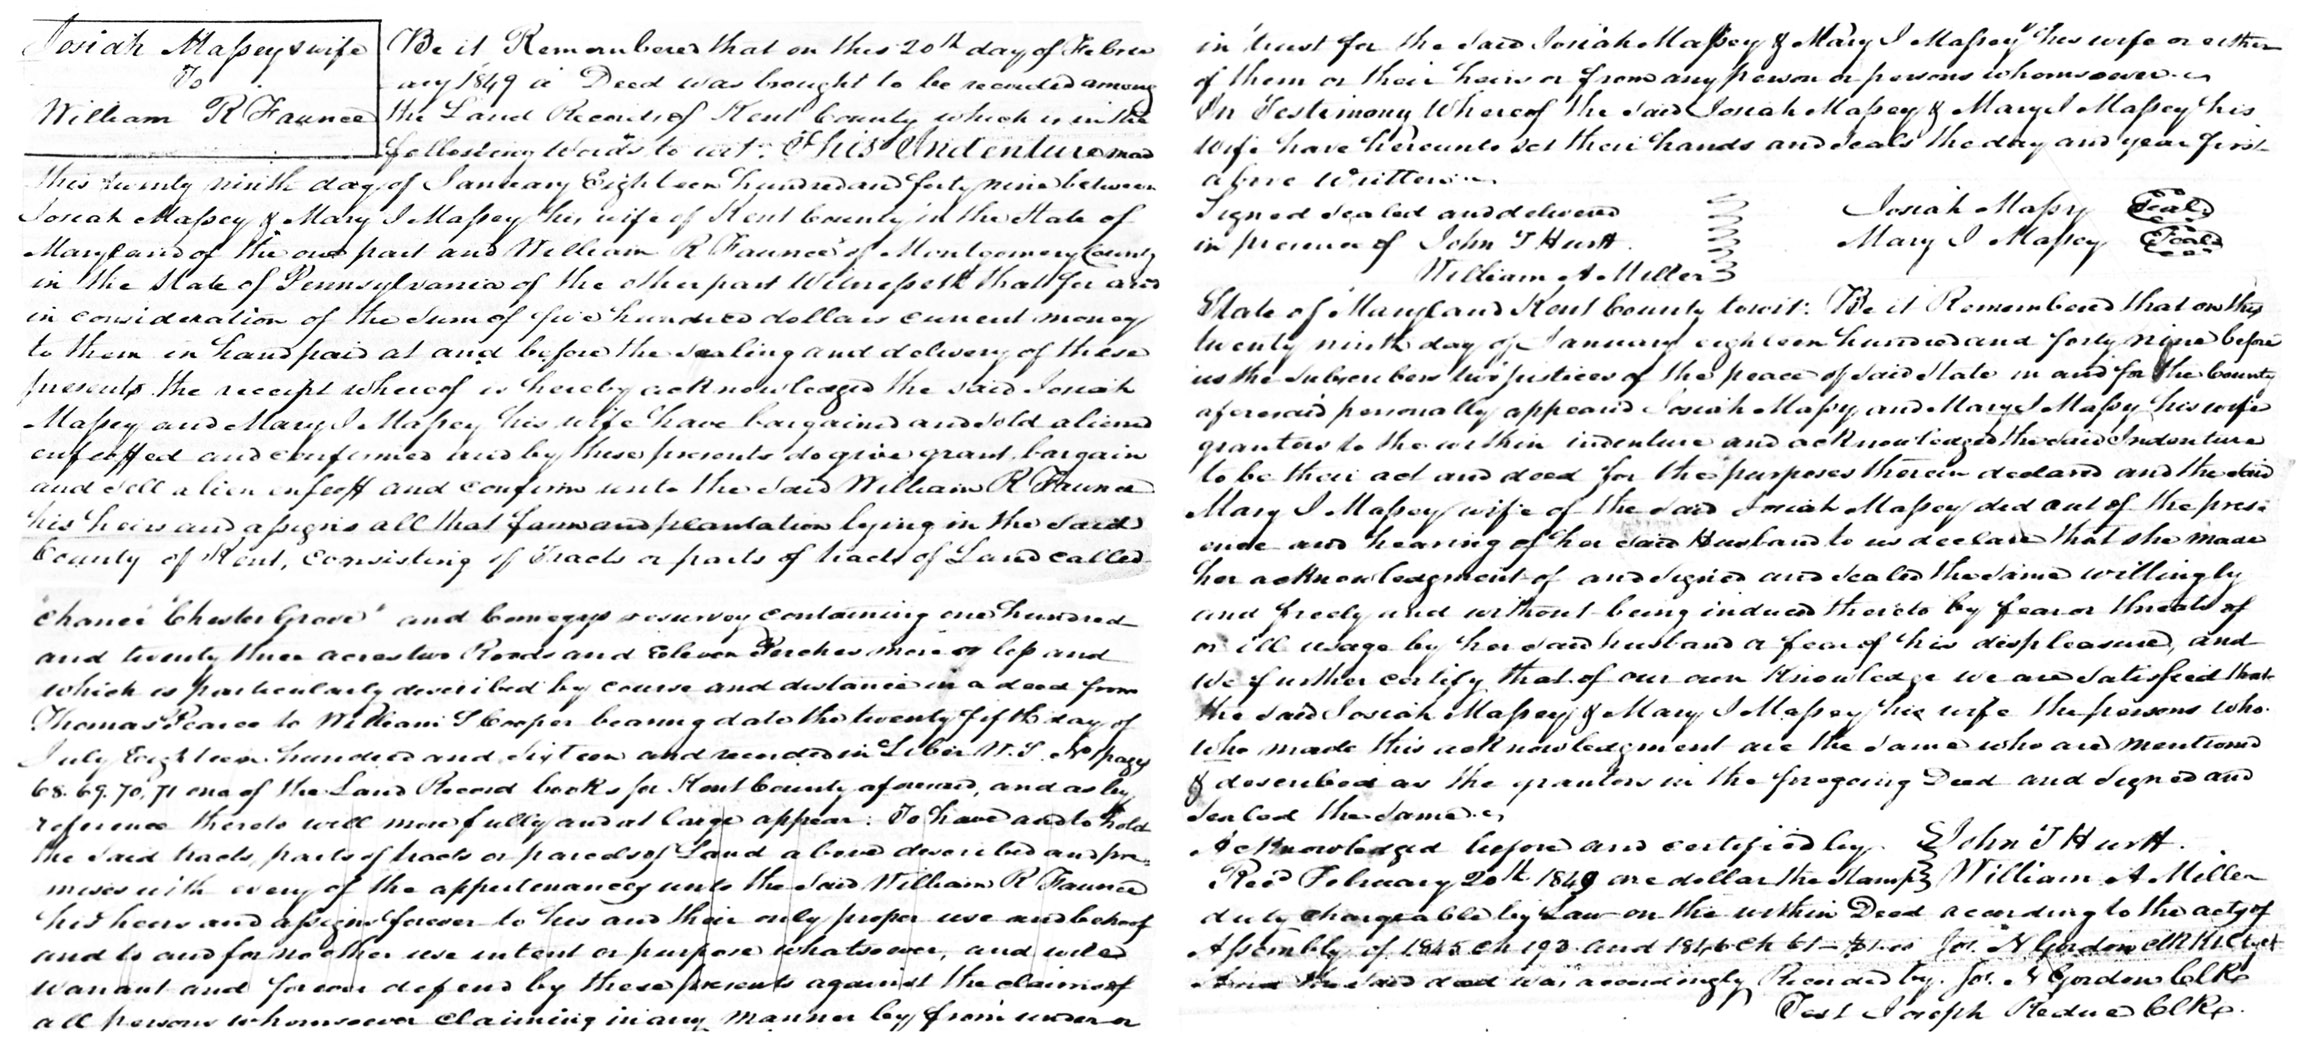 Josiah Massey & wife
To
William R Faunce
Be it Remembered that on this 20th day of Febru
ary 1849 a Deed was brought to be recorded among
the Land Records of Kent County which is in the
following Words to wit: This Indenture mad
this twenty ninth day of January Eighteen hundred and forty nine between
Josiah Massey & Mary I Massey his wife of Kent County in the State of
Maryland of the one part and William R Faunce of Montgomery County
in the State of Pennsylvania of the other part Witnesseth that for and
in consideration of the sum of five hundred dollars current money
to them in hand paid at and before the sealing and delivery of these
presents the receipt whereof is hereby acknowledged the said Josiah
Massey and Mary I Massey his wife have bargained and sold aliened
enfeoffed and confirmed and by these presents do give grant bargain
and sell alien enfeoff and confirm unto the said William R Faunce
his heirs and assigns all that farm and plantation lying in the said
County of Kent, consisting of Tracts or parts of tracts of Land called
"Chance" "Chester Grove" and Comegys resurvey containing one hundred
and twenty three acres two Roods and Eleven Perches more or less and
which is particularly described by course and distance in a deed from
Thomas Pearce to William S Cooper bearing date the twenty fifth day of
July Eighteen hundred and sixteen and recorded in Liber W.S. No pages
68. 69. 70. 71 one of the Land Record books for Kent County aforesaid, and as by
reference thereto will more fully and at large appear. To have and to hold
the said tracts, parts of tracts or parcels of Land above described and pre-
mises with every of the appurtenances unto the said William R Faunce
his heirs and assigns forever to his and their only proper use and behoof
and to and for no other use intent or purpose whatsoever, and will
warrant and forever defend by these presents against the claims of
all persons whomsoever claiming in any manner by from under or
in trust for the said Josiah Massey & Mary I Massey his wife or either
of them or their heirs or from any person or persons whomsoever.
In Testimony Whereof the said Josiah Massey & Mary I Massey his
wife have hereunto set their hands and seals the day and year first
above written
Signed sealed and delivered Josiah Massey Seal
in presence of John T Hurtt. Mary I Massey Seal
William A Miller
State of Maryland Kent County to wit: Be it Remembered that on this
twenty ninth day of January eighteen hundred and forty nine before
us the subscribers two justices of the peace of said State in and for the County
aforesaid personally appeared Josiah Massey and Mary I Massey his wife
grantors to the within indenture and acknowledged the said Indenture
to be their act and deed for the purposes therein declared and the said
Mary I Massey wife of the said Josiah Massey did out of the pres
ence and hearing of her said Husband to us declare that she made
her acknowledgment of and signed and sealed the same willingly
and freely and without being induced thereto by fear or threats of
or ill usage by her said husband a fear of his displeasure, and
we further certify that of our own Knowledge we are satisfied that
the said Josiah Massey & Mary I Massey his wife the persons who
who made this acknowledgment are the same who are mentioned
& described as the grantors in the foregoing Deed and signed and
sealed the same
Acknowledged before and certified by John T Hurtt.
Recd February 20th 1849 one dollar the stamp William A Miller
duty chargeable by Law on the within Deed according to the acts of
Assembly of 1845 ch 193 and 1846 ch 61 - $1.00 Jos. N Gordon
And the said deed was accordingly Recorded by Jos. N Gordon Clk
Test Joseph Redue Clk